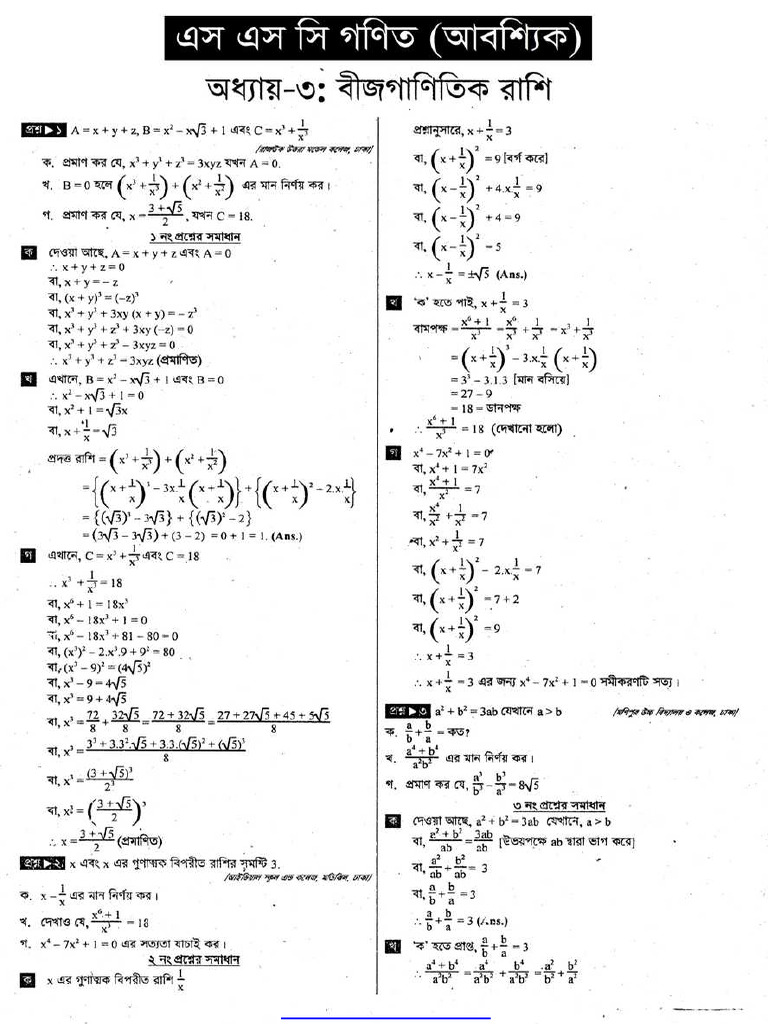 এস এস সি গণিত (আবশ্যিক)
অধ্যায়-৩: বীজগাণিতিক রাশি
প্রশ্ন ▶ ১ A = x + y + z, B = x² – x√3 + 1 এবং C = x³ + 1/x³
[রাজউক উত্তরা মডেল কলেজ, ঢাকা]
ক. প্রমাণ কর যে, x³ + y³ + z³ = 3xyz যখন A = 0.
খ. B = 0 হলে (x³ + 1/x³) + (x² + 1/x²) এর মান নির্ণয় কর।
গ. প্রমাণ কর যে, x = (3 + √5)/2, যখন C = 18.
১ নং প্রশ্নের সমাধান
ক দেওয়া আছে, A = x + y + z এবং A = 0
∴ x + y + z = 0
বা, x + y = – z
বা, (x + y)³ = (–z)³
বা, x³ + y³ + 3xy (x + y) = – z³
বা, x³ + y³ + z³ + 3xy (–z) = 0
বা, x³ + y³ + z³ – 3xyz = 0
∴ x³ + y³ + z³ = 3xyz (প্রমাণিত)
খ এখানে, B = x² – x√3 + 1 এবং B = 0
∴ x² – x√3 + 1 = 0
বা, x² + 1 = √3x
বা, x + 1/x = √3
প্রদত্ত রাশি = (x³ + 1/x³) + (x² + 1/x²)
= {(x + 1/x)³ – 3x.1/x (x + 1/x)} + {(x + 1/x)² – 2.x.1/x}
= {(√3)³ – 3√3} + {(√3)² – 2}
= (3√3 – 3√3) + (3 – 2) = 0 + 1 = 1. (Ans.)
গ এখানে, C = x³ + 1/x³ এবং C = 18
∴ x³ + 1/x³ = 18
বা, x⁶ + 1 = 18x³
বা, x⁶ – 18x³ + 1 = 0
বা, x⁶ – 18x³ + 81 – 80 = 0
বা, (x³)² – 2.x³.9 + 9² = 80
বা, (x³ – 9)² = (4√5)²
বা, x³ – 9 = 4√5
বা, x³ = 9 + 4√5
বা, x³ = 72/8 + 32√5/8 = (72 + 32√5)/8 = (27 + 27√5 + 45 + 5√5)/8
বা, x³ = (3³ + 3.3².√5 + 3.3.(√5)² + (√5)³)/8
বা, x³ = (3 + √5)³/2³
বা, x³ = ((3 + √5)/2)³
∴ x = (3 + √5)/2 (প্রমাণিত)
প্রশ্ন ▶ ২ x এবং x এর গুণাত্মক বিপরীত রাশির সমষ্টি 3.
[আইডিয়াল স্কুল এন্ড কলেজ, মতিঝিল, ঢাকা]
ক. x – 1/x এর মান নির্ণয় কর।
খ. দেখাও যে, (x⁶ + 1)/x³ = 18
গ. x⁴ – 7x² + 1 = 0 এর সত্যতা যাচাই কর।
২ নং প্রশ্নের সমাধান
ক x এর গুণাত্মক বিপরীত রাশি 1/x
প্রশ্নানুসারে, x + 1/x = 3
বা, (x + 1/x)² = 9 [বর্গ করে]
বা, (x – 1/x)² + 4.x.1/x = 9
বা, (x – 1/x)² + 4 = 9
বা, (x – 1/x)² = 5
∴ x – 1/x = ±√5 (Ans.)
খ 'ক' হতে পাই, x + 1/x = 3
বামপক্ষ = (x⁶ + 1)/x³ = x⁶/x³ + 1/x³ = x³ + 1/x³
= (x + 1/x)³ – 3.x.1/x (x + 1/x)
= 3³ – 3.1.3 [মান বসিয়ে]
= 27 – 9
= 18 = ডানপক্ষ
∴ (x⁶ + 1)/x³ = 18 (দেখানো হলো)
গ x⁴ – 7x² + 1 = 0
বা, x⁴ + 1 = 7x²
বা, (x⁴ + 1)/x² = 7
বা, x⁴/x² + 1/x² = 7
বা, x² + 1/x² = 7
বা, (x + 1/x)² – 2.x.1/x = 7
বা, (x + 1/x)² = 7 + 2
বা, (x + 1/x)² = 9
∴ x + 1/x = 3
∴ x + 1/x = 3 এর জন্য x⁴ – 7x² + 1 = 0 সমীকরণটি সত্য।
প্রশ্ন ▶ ৩ a² + b² = 3ab যেখানে a > b
[মণিপুর উচ্চ বিদ্যালয় ও কলেজ, ঢাকা]
ক. a/b + b/a = কত?
খ. (a⁴ + b⁴)/a²b² এর মান নির্ণয় কর।
গ. প্রমাণ কর যে, a³/b³ – b³/a³ = 8√5
৩ নং প্রশ্নের সমাধান
ক দেওয়া আছে, a² + b² = 3ab যেখানে, a > b
বা, (a² + b²)/ab = 3ab/ab [উভয়পক্ষে ab দ্বারা ভাগ করে]
বা, a²/ab + b²/ab = 3
বা, a/b + b/a = 3
∴ a/b + b/a = 3 (Ans.)
খ 'ক' হতে প্রাপ্ত, a/b + b/a = 3
∴ (a⁴ + b⁴)/a²b² = a⁴/a²b² + b⁴/a²b² = a²/b² + b²/a²